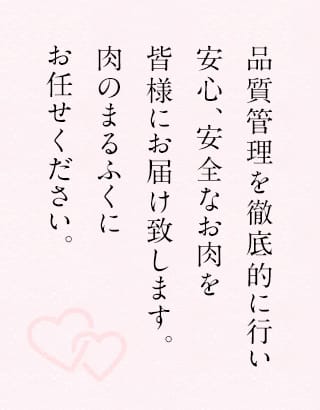 品質管理を徹底的に行い
安心、安全なお肉を
皆様にお届け致します。
肉のまるふくに
お任せください。